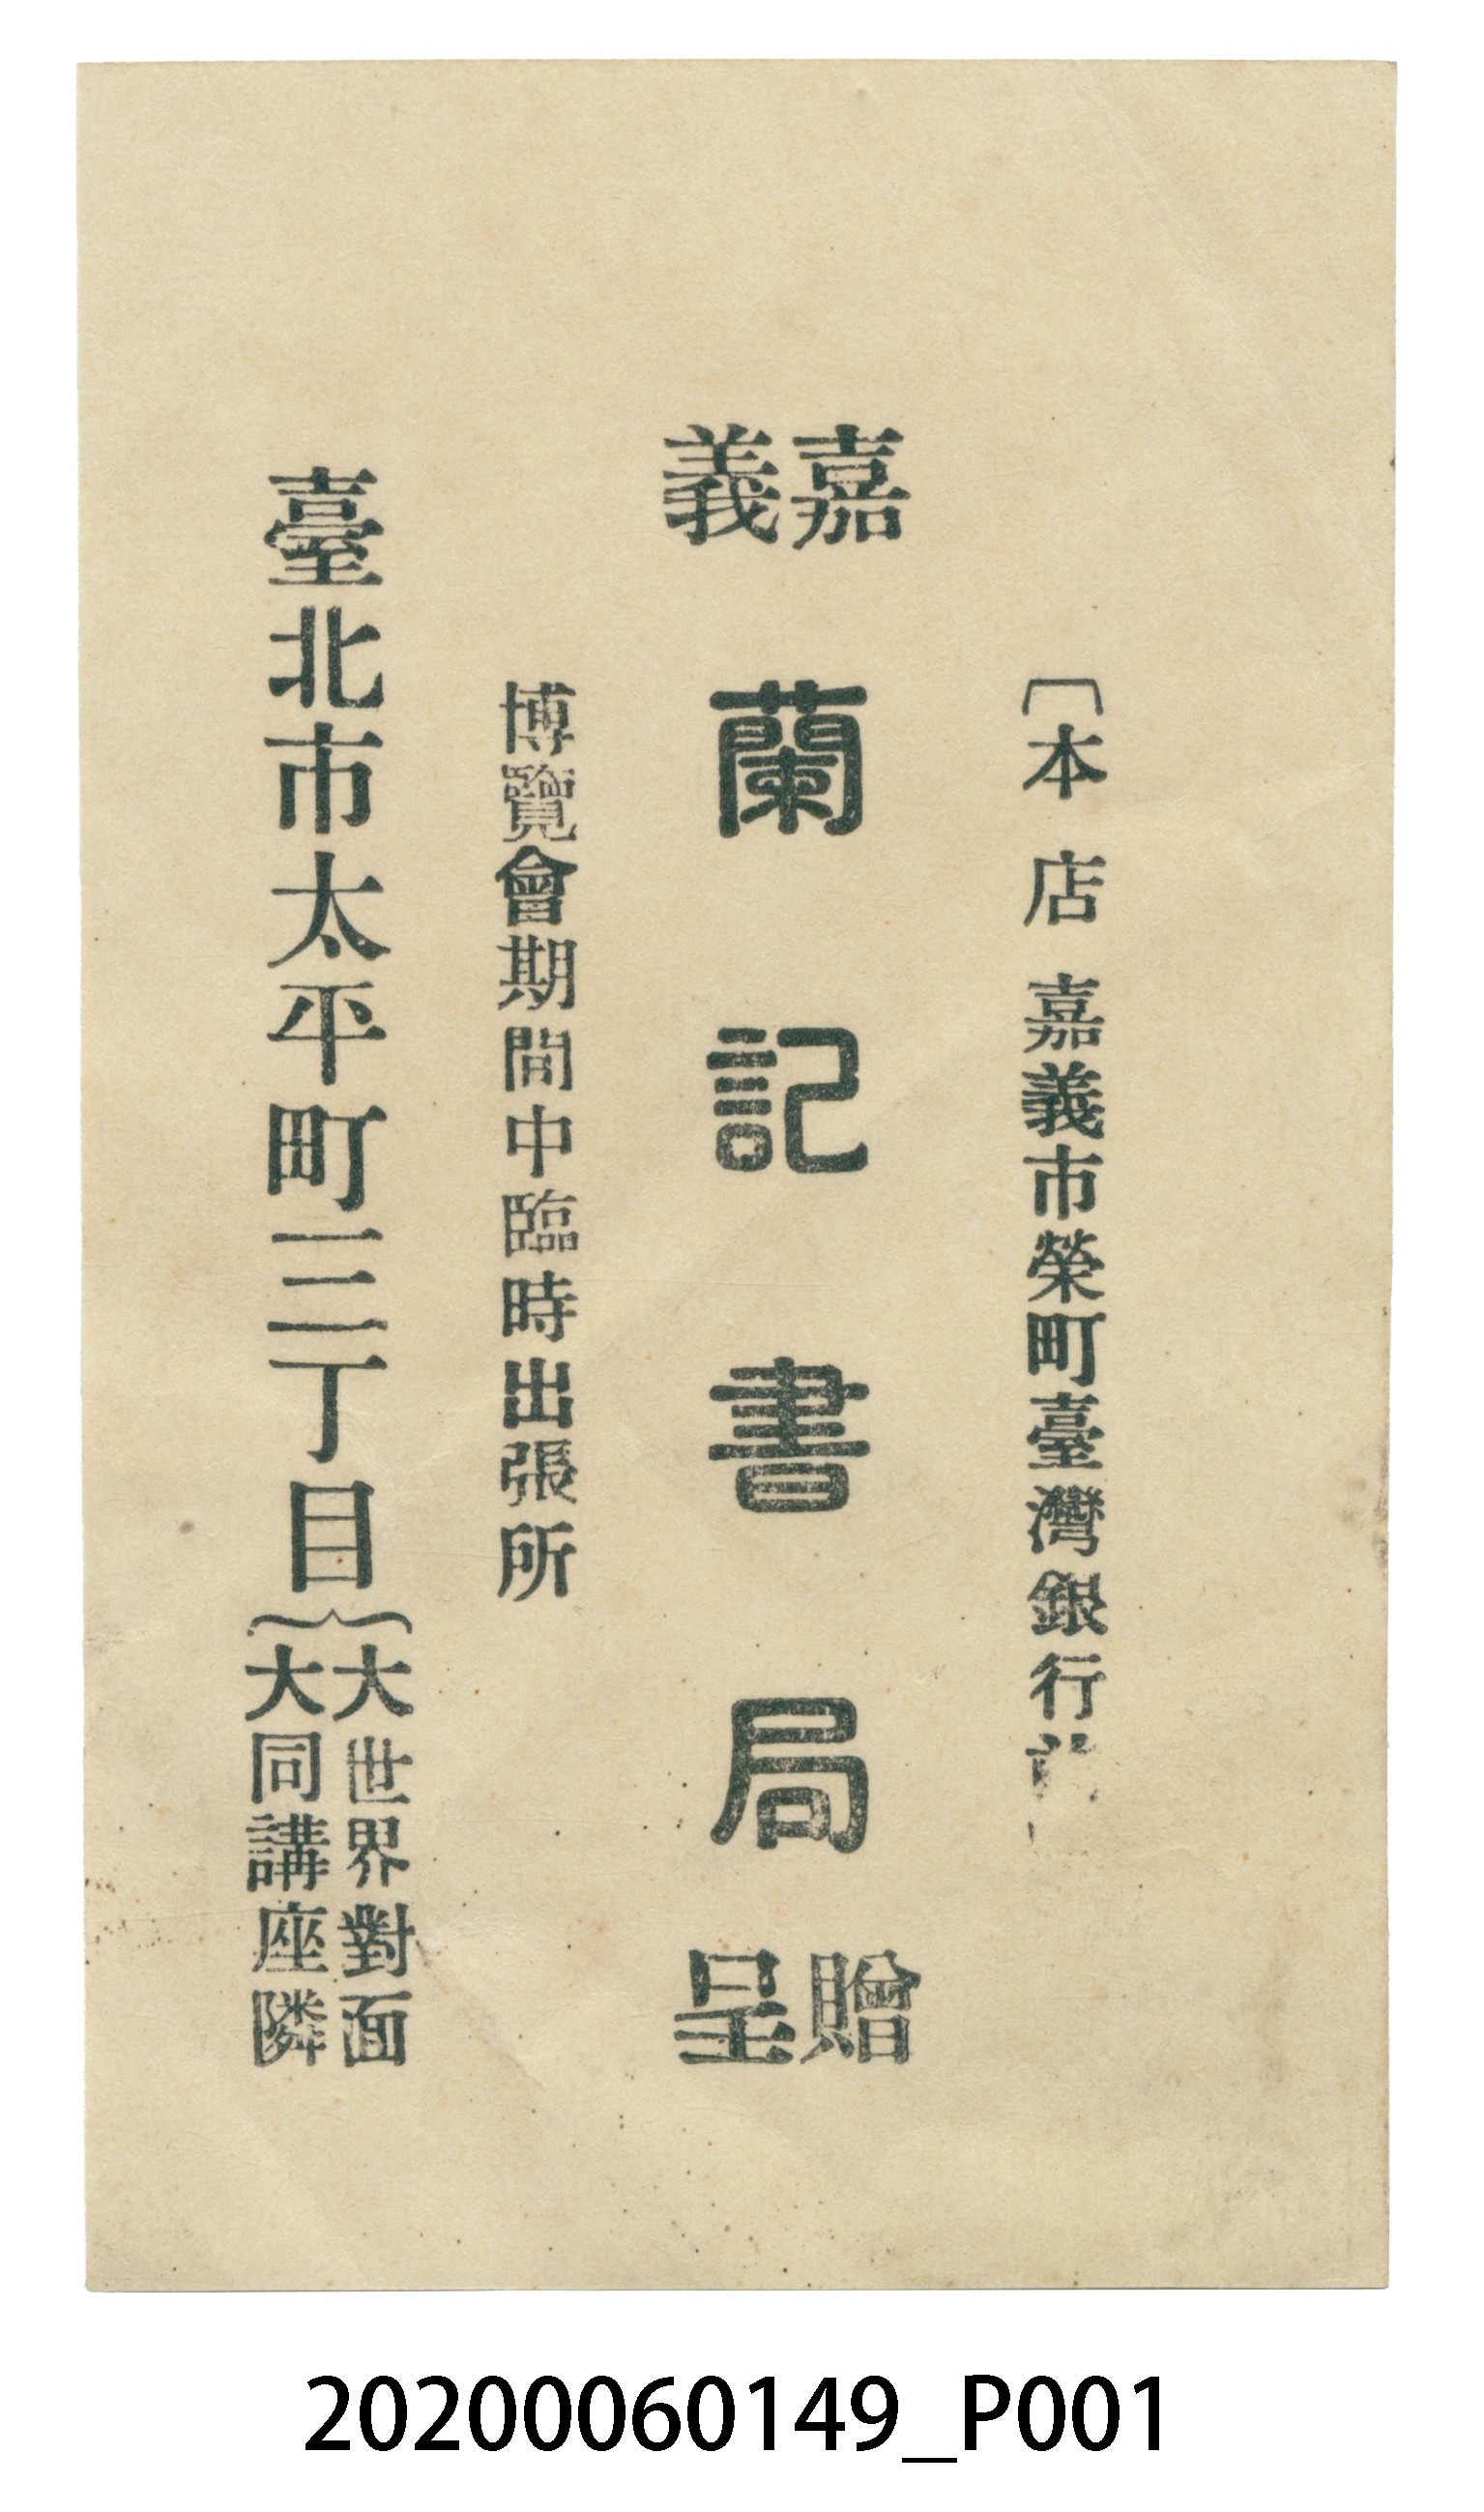 〔本店 嘉義市榮町臺灣銀行前
嘉義 蘭記書局 贈呈
博覽會期間中臨時出張所
臺北市太平町三丁目
大世界對面
大同講座隣
20200060149_P001